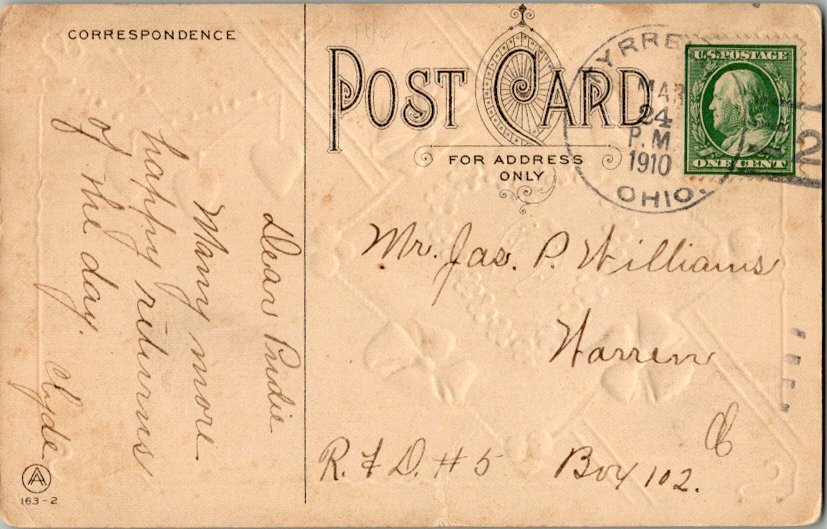 CORRESPONDENCE
Dear Pridie
Many more
happy returns
of the day.
Clyde
A
163-2
POST CARD
FOR ADDRESS
ONLY
MAR
24
P.M.
1910
OHIO.
U.S. POSTAGE
ONE CENT
2
Mr. Jas. P. Williams
Warren
R.F.D. #5 Box 102.